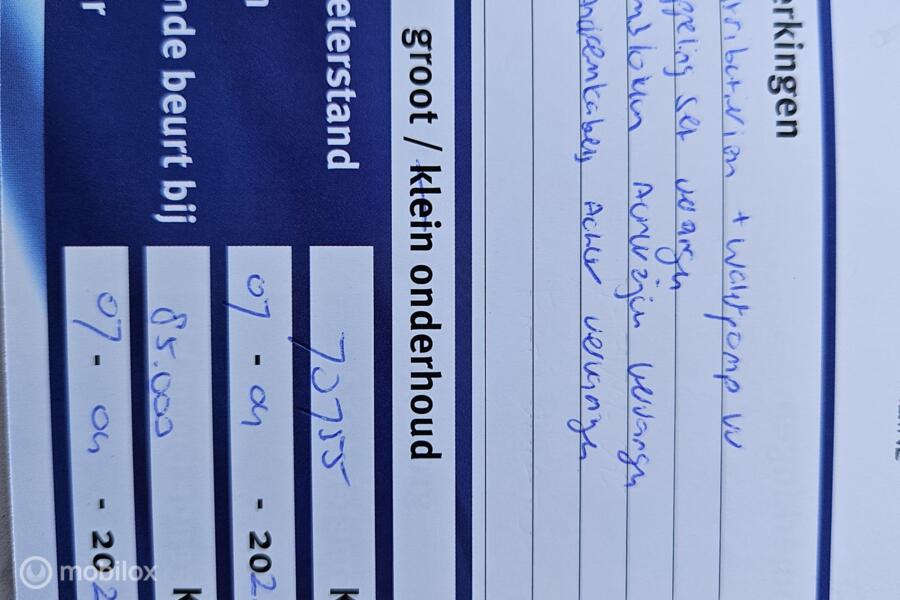 erkingen
tributieriem + Waterpomp vv
ppeling set vervangen
mslokken Achterzijn vervangen
Achter vervangen
groot / klein onderhoud
eterstand 70755 K
n 07 - 04 - 202
nde beurt bij 85.000 K
r 07 - 04 - 202
mobilox